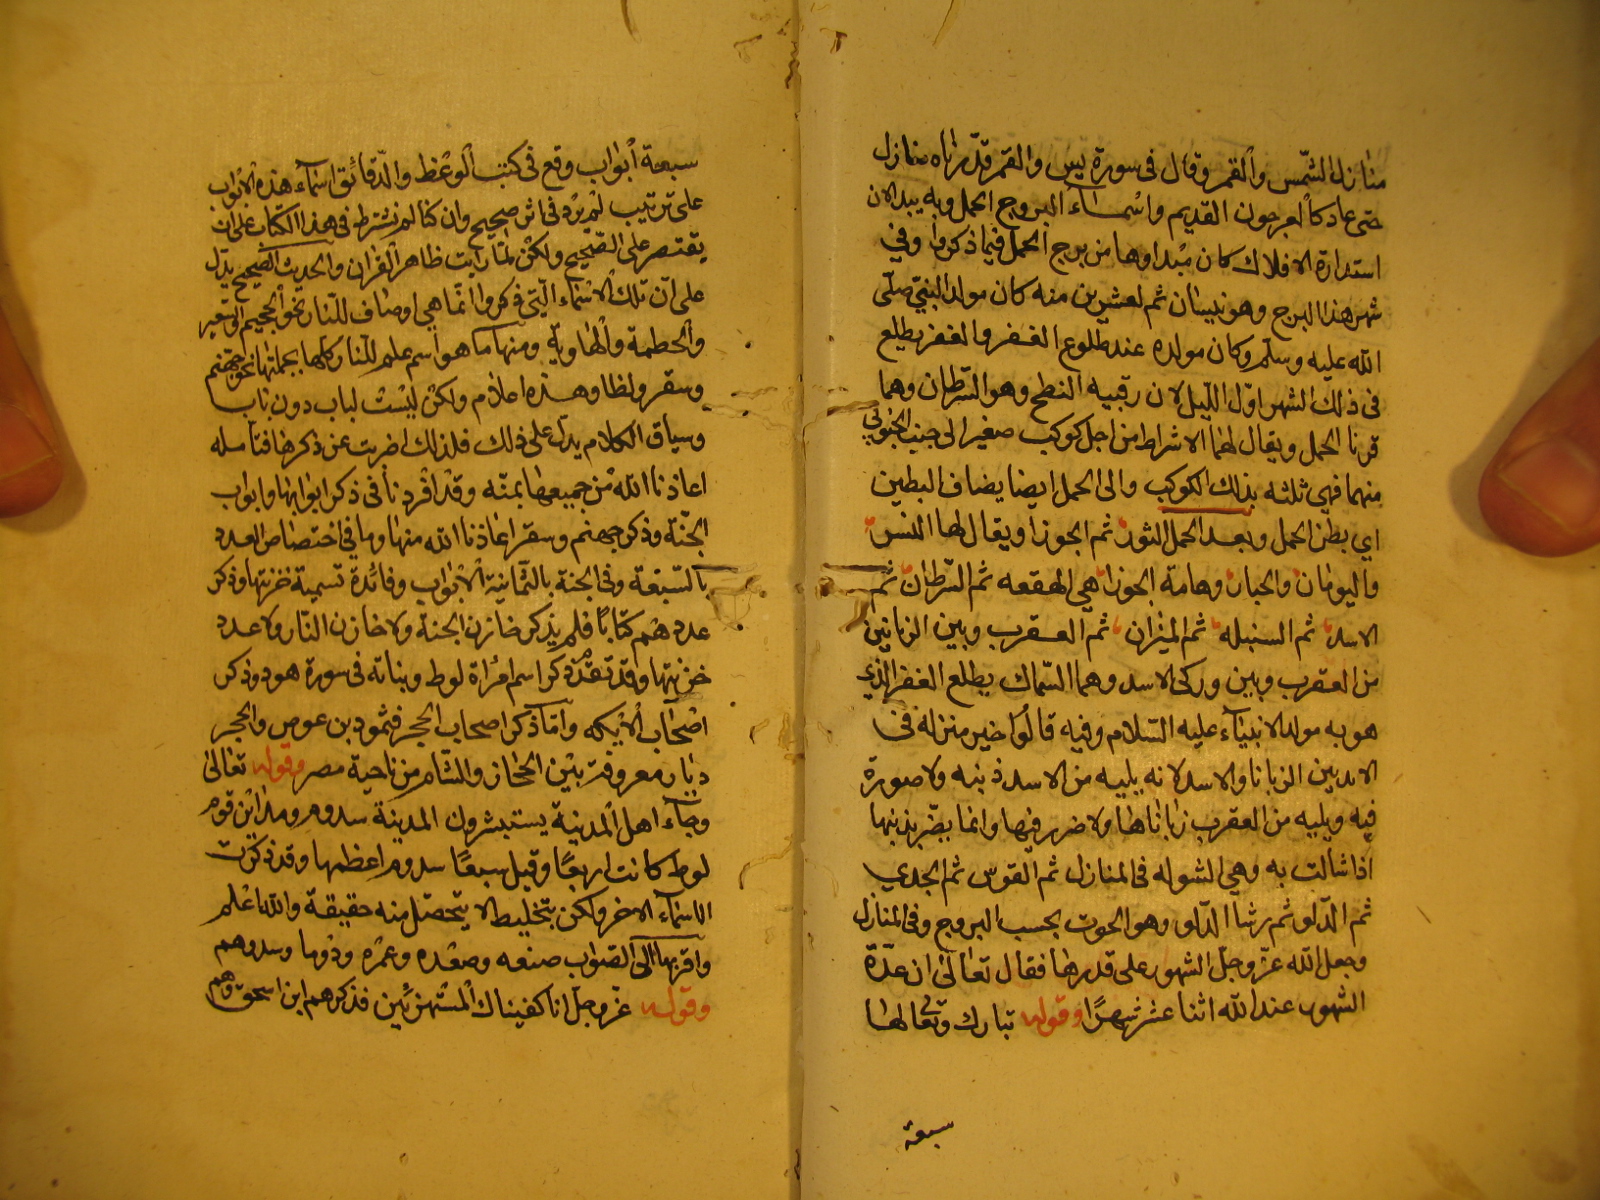 منازل الشمس والقمر وقال فى سورة يس والقمر قدرناه منازل
حتى عاد كالعرجون القديم واسماء البروج الحمل وبه يبدا لان
استدارة الافلاك كان مبداوها من برج الحمل فيما ذكروا وفي
شهر هذا البرج وهو نيسان ثم لعشرين منه كان مولد النبي صلى
الله عليه وسلم وكان مولده عند طلوع الغفر والغفر يطلع
فى ذلك الشهر اول الليل لان رقيبه النطح وهو الشرطان وهما
قرنا الحمل ويقال لهما الاشراط من اجل كوكب صغير الى جنب الجنوبي
منهما فهى ثلثه بذلك الكوكب والى الحمل ايضا يضاف البطين
اي بطن الحمل وبعد الحمل الثور ثم الجوزا ويقال لها النسر
واليومان والجبار وهامة الجوزا هى الهقعه ثم السرطان ثم
الاسد ثم السنبله ثم الميزان ثم العقرب وبين الزبانين
من العقرب وبين وركى الاسد وهما السماك يطلع الغفر الذي
هو به مولد الانبياء عليه السلام وفيه قالوا خير منزله فى
الابد بين الزبانا والاسد لانه يليه من الاسد ذنبه ولا صورة
فيه ويليه من العقرب زباناها ولا ضرر فيها وانما يضر بذنبها
اذا شالت به وهي الشوله فى المنازل ثم القوس ثم الجدي
ثم الدلو ثم رشا الدلو وهو الحوت بحسب البروج وفى المنازل
وجعل الله عز وجل الشهور على قدرها فقال تعالى ان عدة
الشهور عند الله اثنا عشر شهرا وقوله تبارك وتعالى لها
سبعة
سبعة ابواب وقع فى كتب الوعظ والدقائق اسماء هذه الابواب
على ترتيب لم يرد فى اثر صحيح وان كنا لم نشترط فى هذا الكتاب على ان
يقتصر على الصحيح ولكن لما رايت ظاهر القران والحديث الصحيح يدل
على ان تلك الاسماء التي ذكروا انما هي اوصاف للنار نحو الجحيم والسعير
والحطمة والهاوية ومنها ما هو اسم علم للنار كلها بجملتها نحو جهنم
وسقر ولظا وهذه اعلام ولكن ليست لباب دون باب
وسياق الكلام يدل على ذلك فلذلك اضربت عن ذكرها فتامله
اعاذنا الله من جميعها بمنه وقد افردنا فى ذكر ابوابها وابواب
الجنة وذكر جهنم وسقر اعاذنا الله منها وما فى اختصاص العدد
بالسبعة وفى الجنة بالثمانية الابواب وفائدة تسمية خزنتها وذكر
عددهم كتابا فلم يذكر خازن الجنة ولا خازن النار ولا عدد
خزنتها وقد تقدم ذكر اسم امراة لوط وبناته فى سورة هود وذكر
اصحاب الايكه واما ذكر اصحاب الحجر فثمود بن عوص والحجر
ديار معروفة بين الحجاز والشام من ناحية مصر وقوله تعالى
وجاء اهل المدينة يستبشرون المدينة سدوم ومداين قوم
لوط كانت اربعا وقيل سبعا سدوم اعظمها وقد ذكرت
الاسماء الاخر ولكن بتخليط لا يتحصل منه حقيقة والله اعلم
واقربها الى الصواب صنعه وصعده وعمره ودوما وسدوم
وقوله عز وجل انا كفيناك المستهزئين فذكرهم ابن اسحق وهم